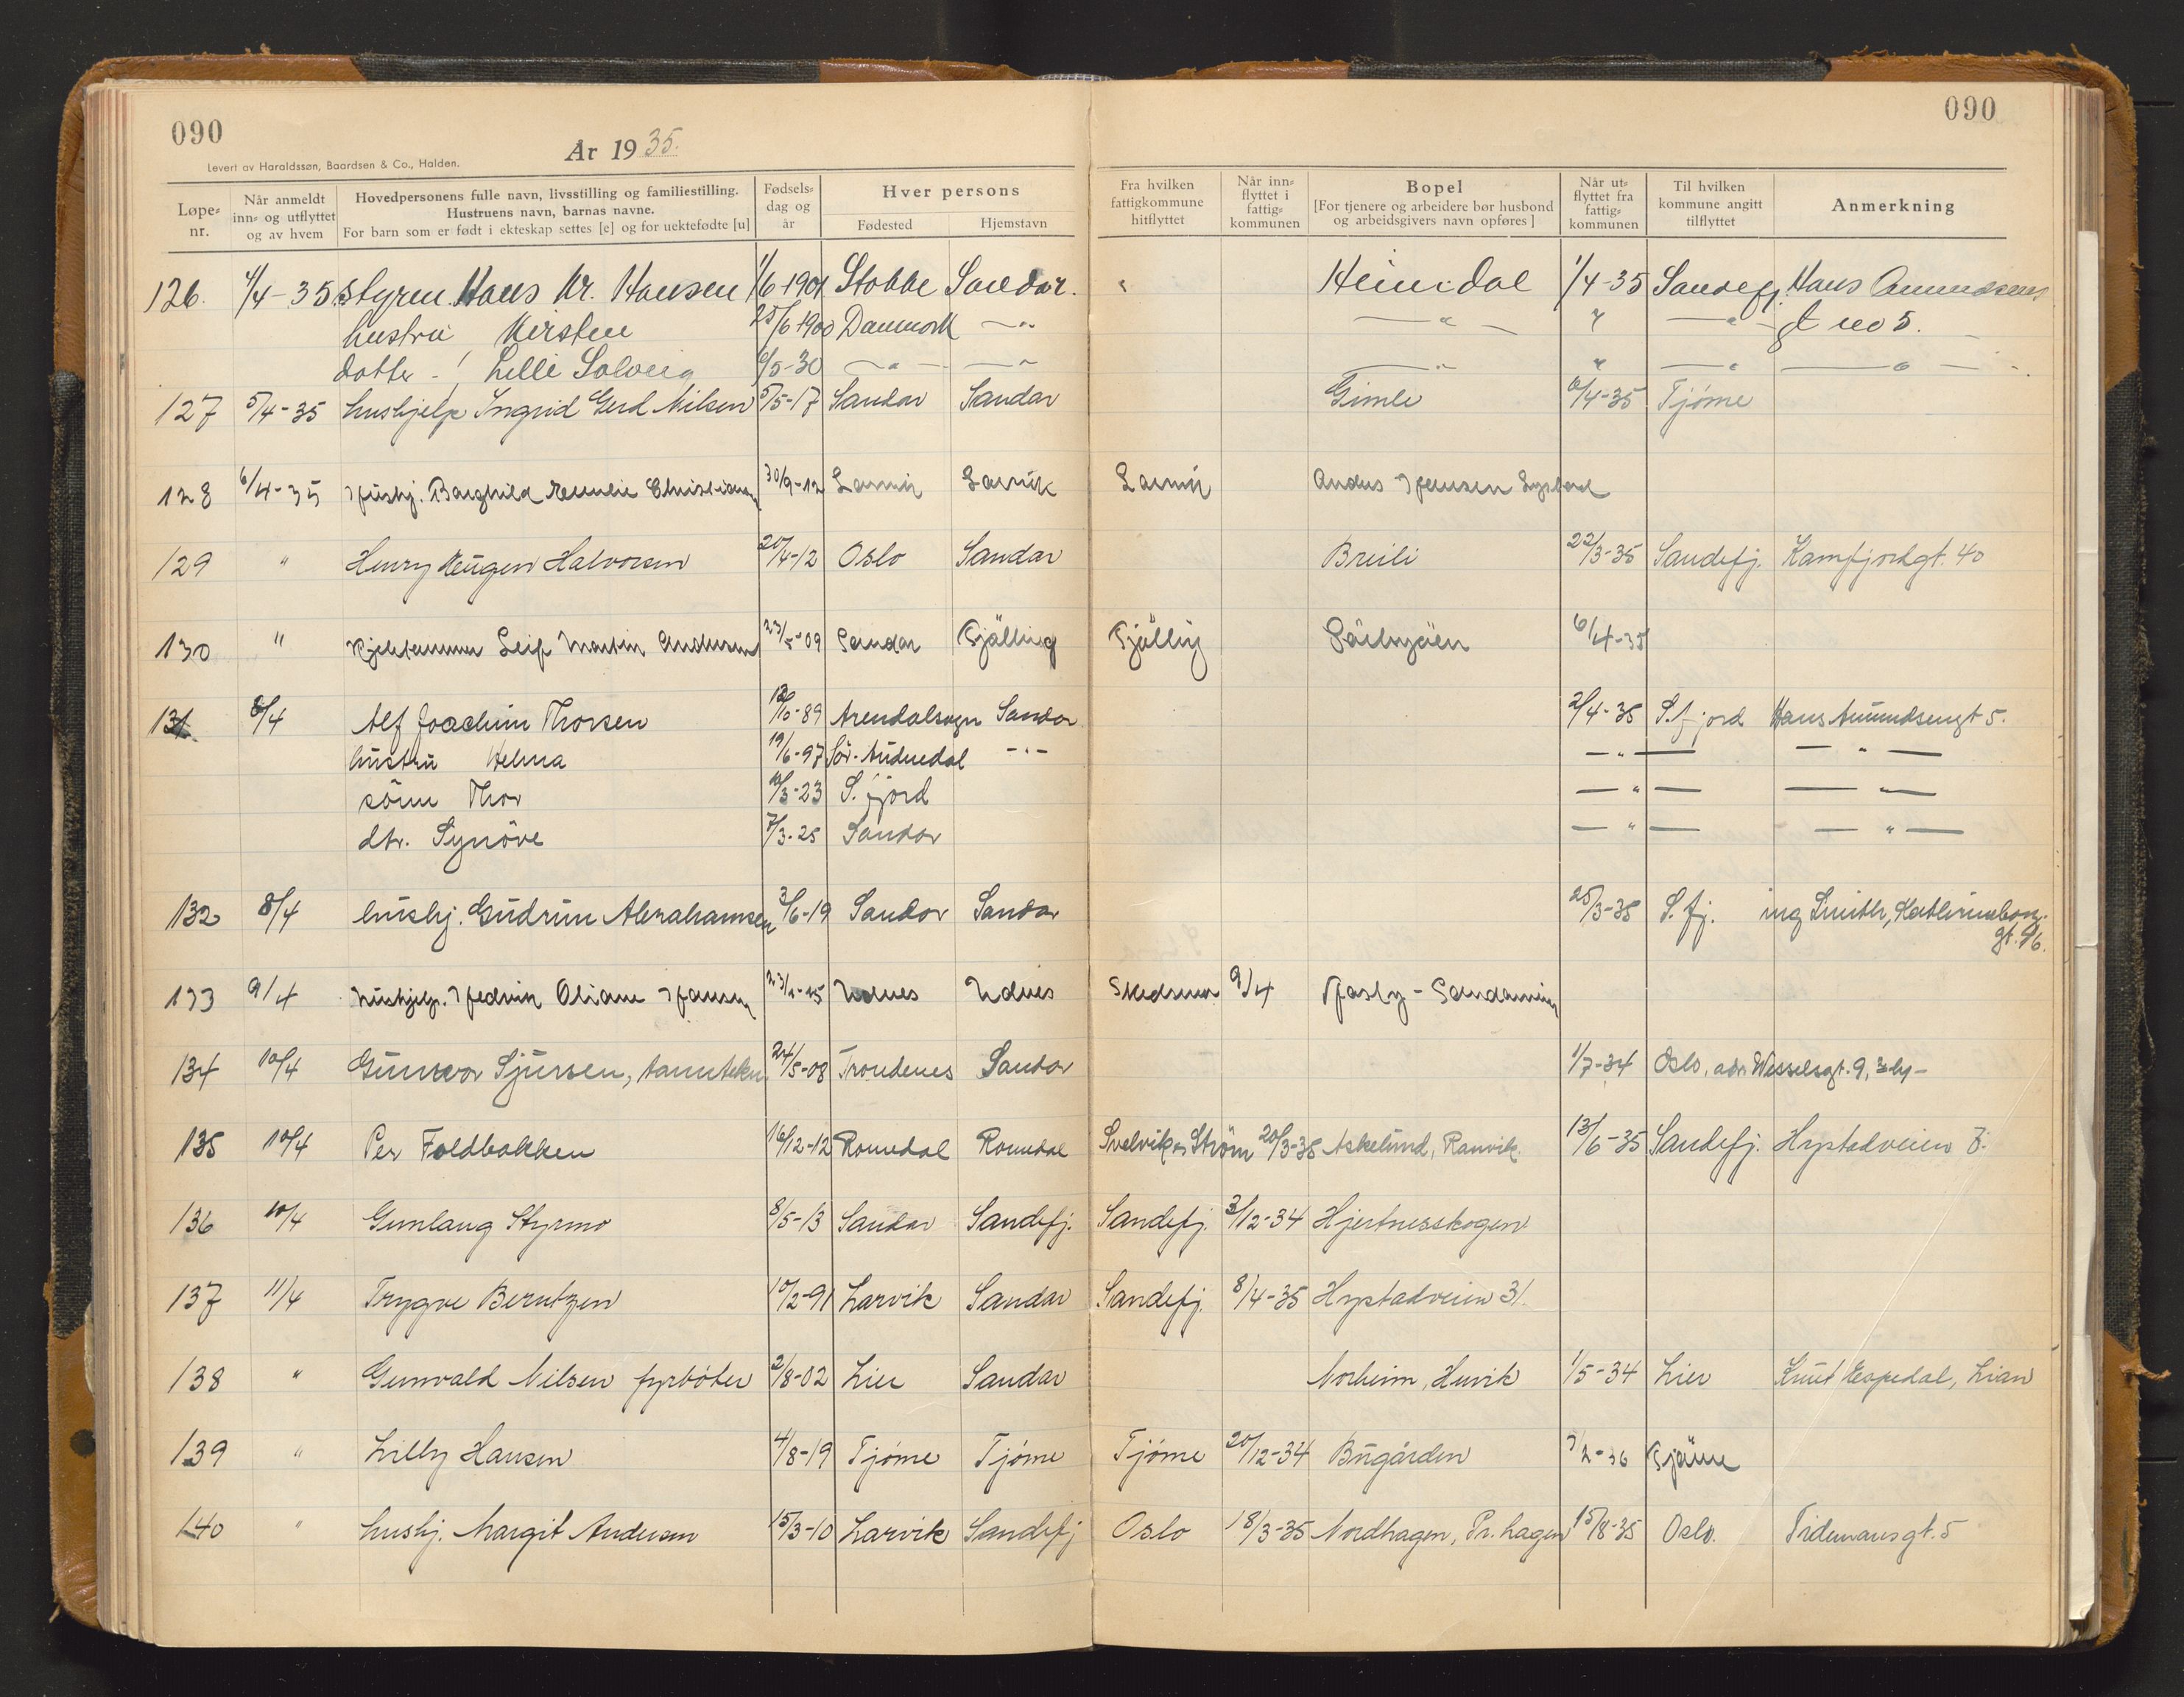 090
090
Levert av Haraldssøn, Baardsen & Co., Halden.
År 1935.
Løpe-nr. Når anmeldt inn- og utflyttet og av hvem Hovedpersonens fulle navn, livsstilling og familiestilling. Hustruens navn, barnas navne. For barn som er født i ekteskap settes [e] og for uektefødte [u] Fødsels-dag og år Hver persons Fødested Hjemstavn Fra hvilken fattigkommune hitflyttet Når inn-flyttet i fattig-kommunen Bopel [For tjenere og arbeidere bør husbond og arbeidsgivers navn opføres] Når ut-flyttet fra fattig-kommunen Til hvilken kommune angitt tilflyttet Anmerkning
126. 4/4-35 Styrm. Hans Kr. Hansen 1/6 1901 Stokke Sandar. " Heimdal 1/4-35 Sandefj. Hans Amundsens
hustru Kirsten 25/6 1900 Danmark -"- -"- " -"- gt no 5.
datter Lilli Solveig 6/5-30 -"- -"- -"- " -"- -"-
127 5/4-35 hushjelp Ingrid Gerd Nilsen 5/5-17 Sandar Sandar Gimle 6/4-35 Tjøme
128 6/4-35 Hushj. Borghild 30/9-12 Larvik Larvik Larvik
129 " Henry Eugen Halvorsen 20/4-12 Oslo Sandar Breili 22/3-35 Sandefj. Kamfjordgt. 40
130 " Leif Martin Andersen 09 Sandar Tjølling Tjølling 6/4-35
131 8/4 Alf Joachim Thorsen 89 Arendalsogn Sandar 2/4-35 S.fjord Hans Amundsengt 5.
hustru Helma 19/6-97 Sør-Audnedal -"- -"- -"-
sønn Thor 10/3-23 S.fjord -"- -"-
dtr. Synøve 7/3-25 Sandar -"- -"-
132 8/4 hushj. Gudrun Abrahamsen 3/6-19 Sandar Sandar 25/3-35 S.fj. ing Smith,
gt. 46.
133 9/4 Hushjelp. Hansen Udnes Udnes Skedsmo 9/4
134 10/4 Gunvor Sjursen, tanntekn. 24/5-08 Trondenes Sandar 1/7-34 Oslo, adr. Wesselsgt. 9,
135 10/4 Per Foldbakken 16/12-12 Romedal Romedal Svelvik Strøm 20/3-35 Askelund, Ranvik. 13/6-35 Sandefj. Hystadveien 7.
136 10/4 Gunlaug Styrmo 8/5-13 Sandar Sandefj. Sandefj. 3/12-34 Hjertnesskogen
137 11/4 Trygve Berntzen 10/2-91 Larvik Sandar Sandefj. 8/4-35 Hystadveien 31.
138 " Gunvald Nilsen fyrbøter 2/8-02 Lier Sandar Norheim, Huvik 1/5-34 Lier Knut Espedal, Lian
139 " Lilly Hansen 4/8-19 Tjøme Tjøme Tjøme 20/12-34 Bugården 2-36 Tjøme
140 " hushj. Margit Andersen 15/3-10 Larvik Sandefj Oslo 18/3-35 Nordhagen, Pr. hagen 15/8-35 Oslo. Tidemansgt. 5